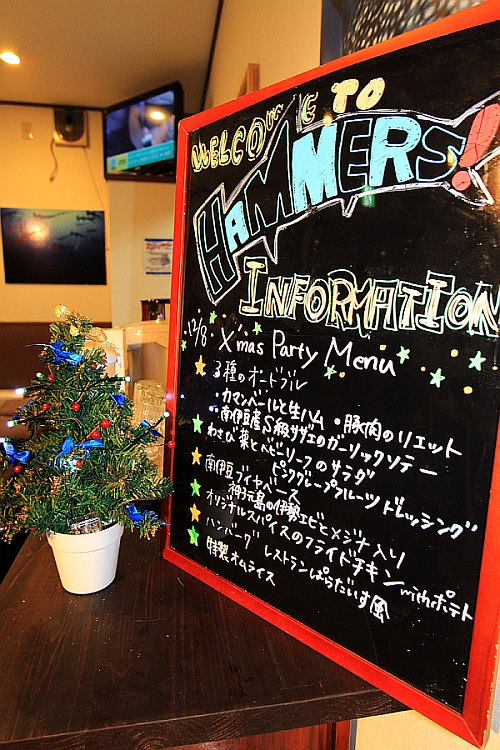 WELCOME TO
HAMMERS!
INFORMATION
12/8 X'mas Party Menu
3種のオードブル
・カマンベールと生ハム ・豚肉のリエット
・南伊豆産S級サザエのガーリックソテー
わさび葉とベビーリーフのサラダ
ピンクグレープフルーツドレッシング
南伊豆ブイヤベース
神子元島の伊勢エビとメジナ入り
オリジナルスパイスのフライドチキン withポテト
ハンバーグ レストランぱらだいす風
特製オムライス